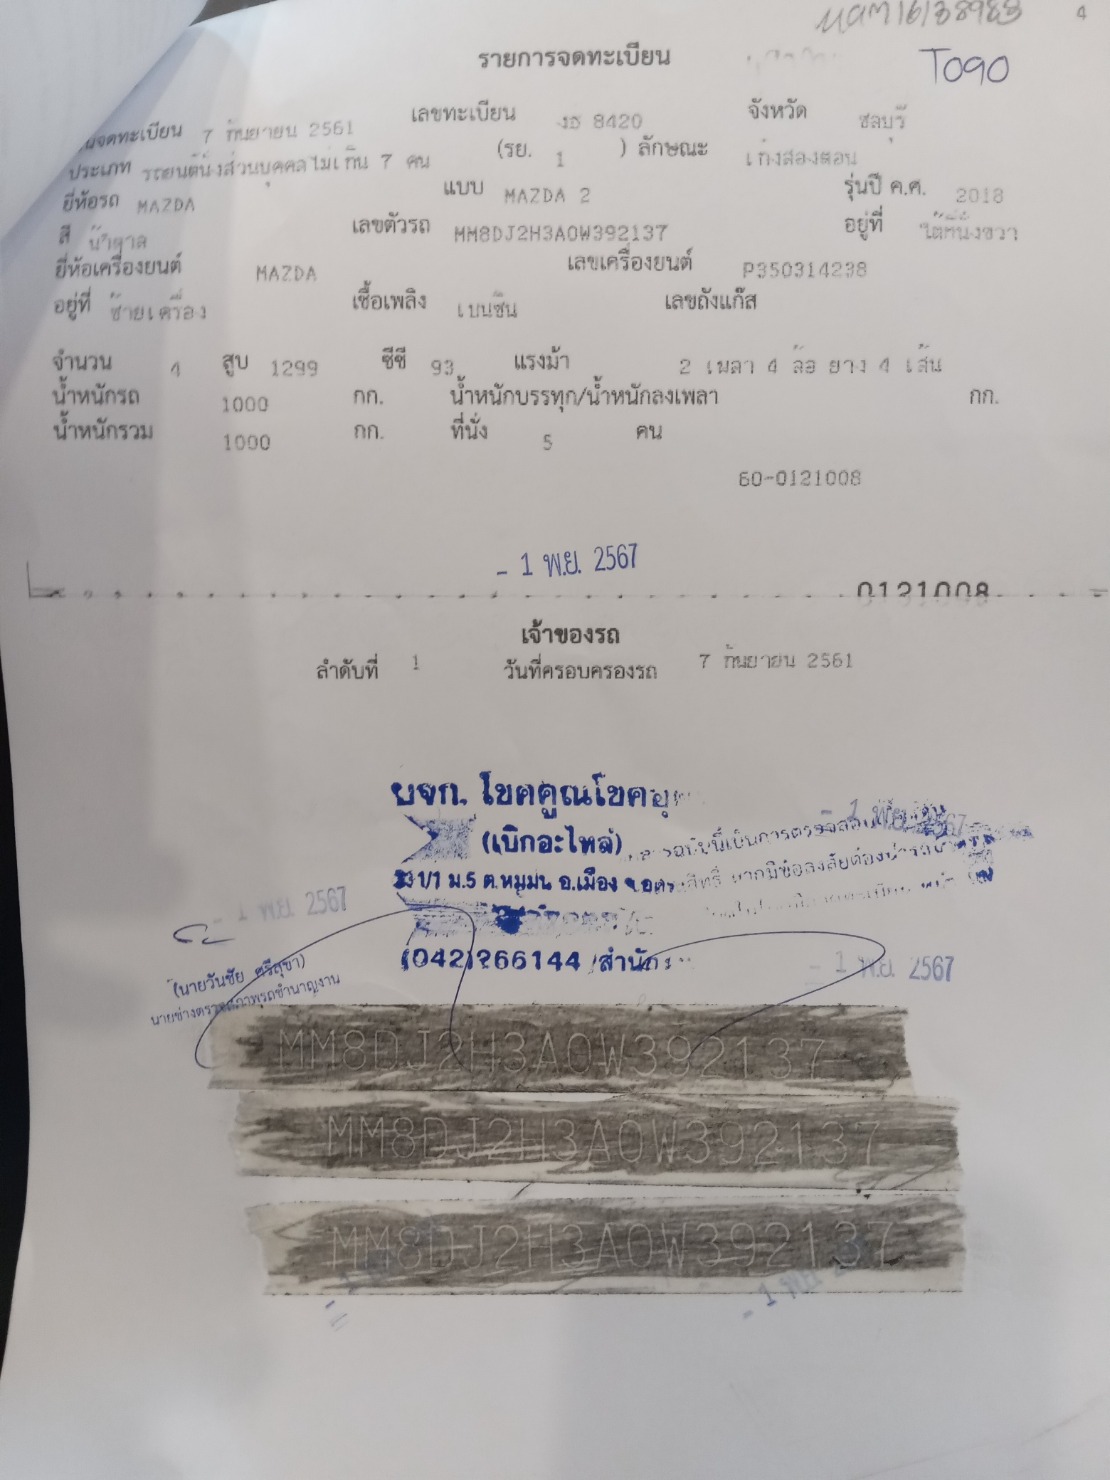 4
T090
รายการจดทะเบียน
วันจดทะเบียน 7 กันยายน 2561 เลขทะเบียน งธ 8420 จังหวัด ชลบุรี
ประเภท รถยนต์นั่งส่วนบุคคลไม่เกิน 7 คน (รย. 1 ) ลักษณะ เก๋งสองตอน
ยี่ห้อรถ MAZDA แบบ MAZDA 2 รุ่นปี ค.ศ. 2018
สี น้ำตาล เลขตัวรถ MM8DJ2H3A0W392137 อยู่ที่ ใต้ที่นั่งขวา
ยี่ห้อเครื่องยนต์ MAZDA เลขเครื่องยนต์ P350314238
อยู่ที่ ซ้ายเครื่อง เชื้อเพลิง เบนซิน เลขถังแก๊ส
จำนวน 4 สูบ 1299 ซีซี 93 แรงม้า 2 เพลา 4 ล้อ ยาง 4 เส้น
น้ำหนักรถ 1000 กก. น้ำหนักบรรทุก/น้ำหนักลงเพลา กก.
น้ำหนักรวม 1000 กก. ที่นั่ง 5 คน
60-0121008
- 1 พ.ย. 2567
0121008
เจ้าของรถ
ลำดับที่ 1 วันที่ครอบครองรถ 7 กันยายน 2561
หจก. โชคคูณโชค
- 1 พ.ย. 2567
(เบิกอะไหล่)
ม.5 ต.หมูม่น อ.เมือง
- 1 พ.ย. 2567
(042)266144 /สำนัก
- 1 พ.ย. 2567
(นายวันชัย ศรีสุขา)
นายช่างตรวจสภาพรถชำนาญงาน
MM8DJ2H3A0W392137
MM8DJ2H3A0W392137
MM8DJ2H3A0W392137
- 1 พ.ย.